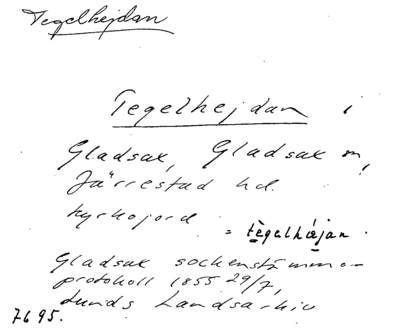 Tegelhejdan
Tegelhejdan i
Gladsax, Gladsax sn,
Järrestad hd.
kyrkojord
= tègalhæjan.
Gladsax sockenstämmo-
protokoll 1855 29/7,
Lunds Landsarkiv
7695.